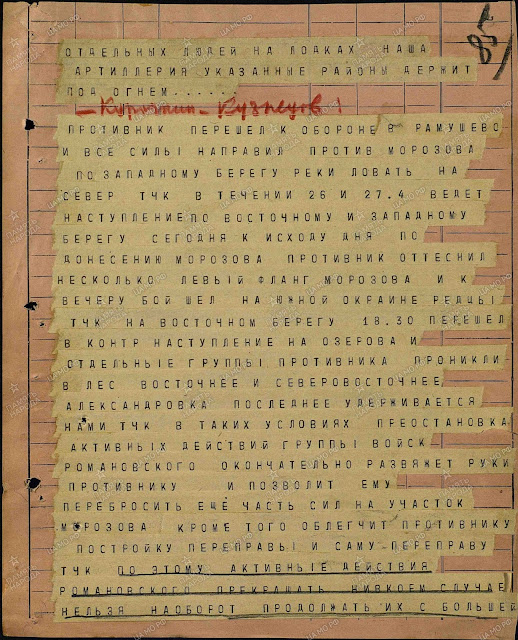 85/
ОТДЕЛЬНЫХ ЛЮДЕЙ НА ЛОДКАХ НАША
АРТИЛЛЕРИЯ УКАЗАННЫЕ РАЙОНЫ ДЕРЖИТ
ПОД ОГНЕМ......
Курочкин - Кузнецов!
ПРОТИВНИК ПЕРЕШЕЛ К ОБОРОНЕ В РАМУШЕВО
И ВСЕ СИЛЫ НАПРАВИЛ ПРОТИВ МОРОЗОВА
ПО ЗАПАДНОМУ БЕРЕГУ РЕКИ ЛОВАТЬ НА
СЕВЕР ТЧК В ТЕЧЕНИИ 26 И 27.4 ВЕДЕТ
НАСТУПЛЕНИЕ ПО ВОСТОЧНОМУ И ЗАПАДНОМУ
БЕРЕГУ СЕГОДНЯ К ИСХОДУ ДНЯ ПО
ДОНЕСЕНИЮ МОРОЗОВА ПРОТИВНИК ОТТЕСНИЛ
НЕСКОЛЬКО ЛЕВЫЙ ФЛАНГ МОРОЗОВА И К
ВЕЧЕРУ БОЙ ШЕЛ НА ЮЖНОЙ ОКРАИНЕ РЕДЦЫ
ТЧК НА ВОСТОЧНОМ БЕРЕГУ 18.30 ПЕРЕШЕЛ
В КОНТР НАСТУПЛЕНИЕ НА ОЗЕРОВА И
ОТДЕЛЬНЫЕ ГРУППЫ ПРОТИВНИКА ПРОНИКЛИ-
В ЛЕС ВОСТОЧНЕЕ И СЕВЕРОВОСТОЧНЕЕ
АЛЕКСАНДРОВКА ПОСЛЕДНЕЕ УДЕРЖИВАЕТСЯ
НАМИ ТЧК В ТАКИХ УСЛОВИЯХ ПРЕОСТАНОВКА
АКТИВНЫХ ДЕЙСТВИЙ ГРУППЫ ВОЙСК
РОМАНОВСКОГО ОКОНЧАТЕЛЬНО РАЗВЯЖЕТ РУКИ
ПРОТИВНИКУ И ПОЗВОЛИТ ЕМУ
ПЕРЕБРОСИТЬ ЕЩЕ ЧАСТЬ СИЛ НА УЧАСТОК
МОРОЗОВА КРОМЕ ТОГО ОБЛЕГЧИТ ПРОТИВНИКУ
ПОСТРОЙКУ ПЕРЕПРАВЫ И САМУ ПЕРЕПРАВУ
ТЧК ПО ЭТОМУ АКТИВНЫЕ ДЕЙСТВИЯ
РОМАНОВСКОГО ПРЕКРАЩАТЬ НИВКОЕМ СЛУЧАЕ
НЕЛЬЗЯ НАОБОРОТ ПРОДОЛЖАТЬ ИХ С БОЛЬШЕЙ